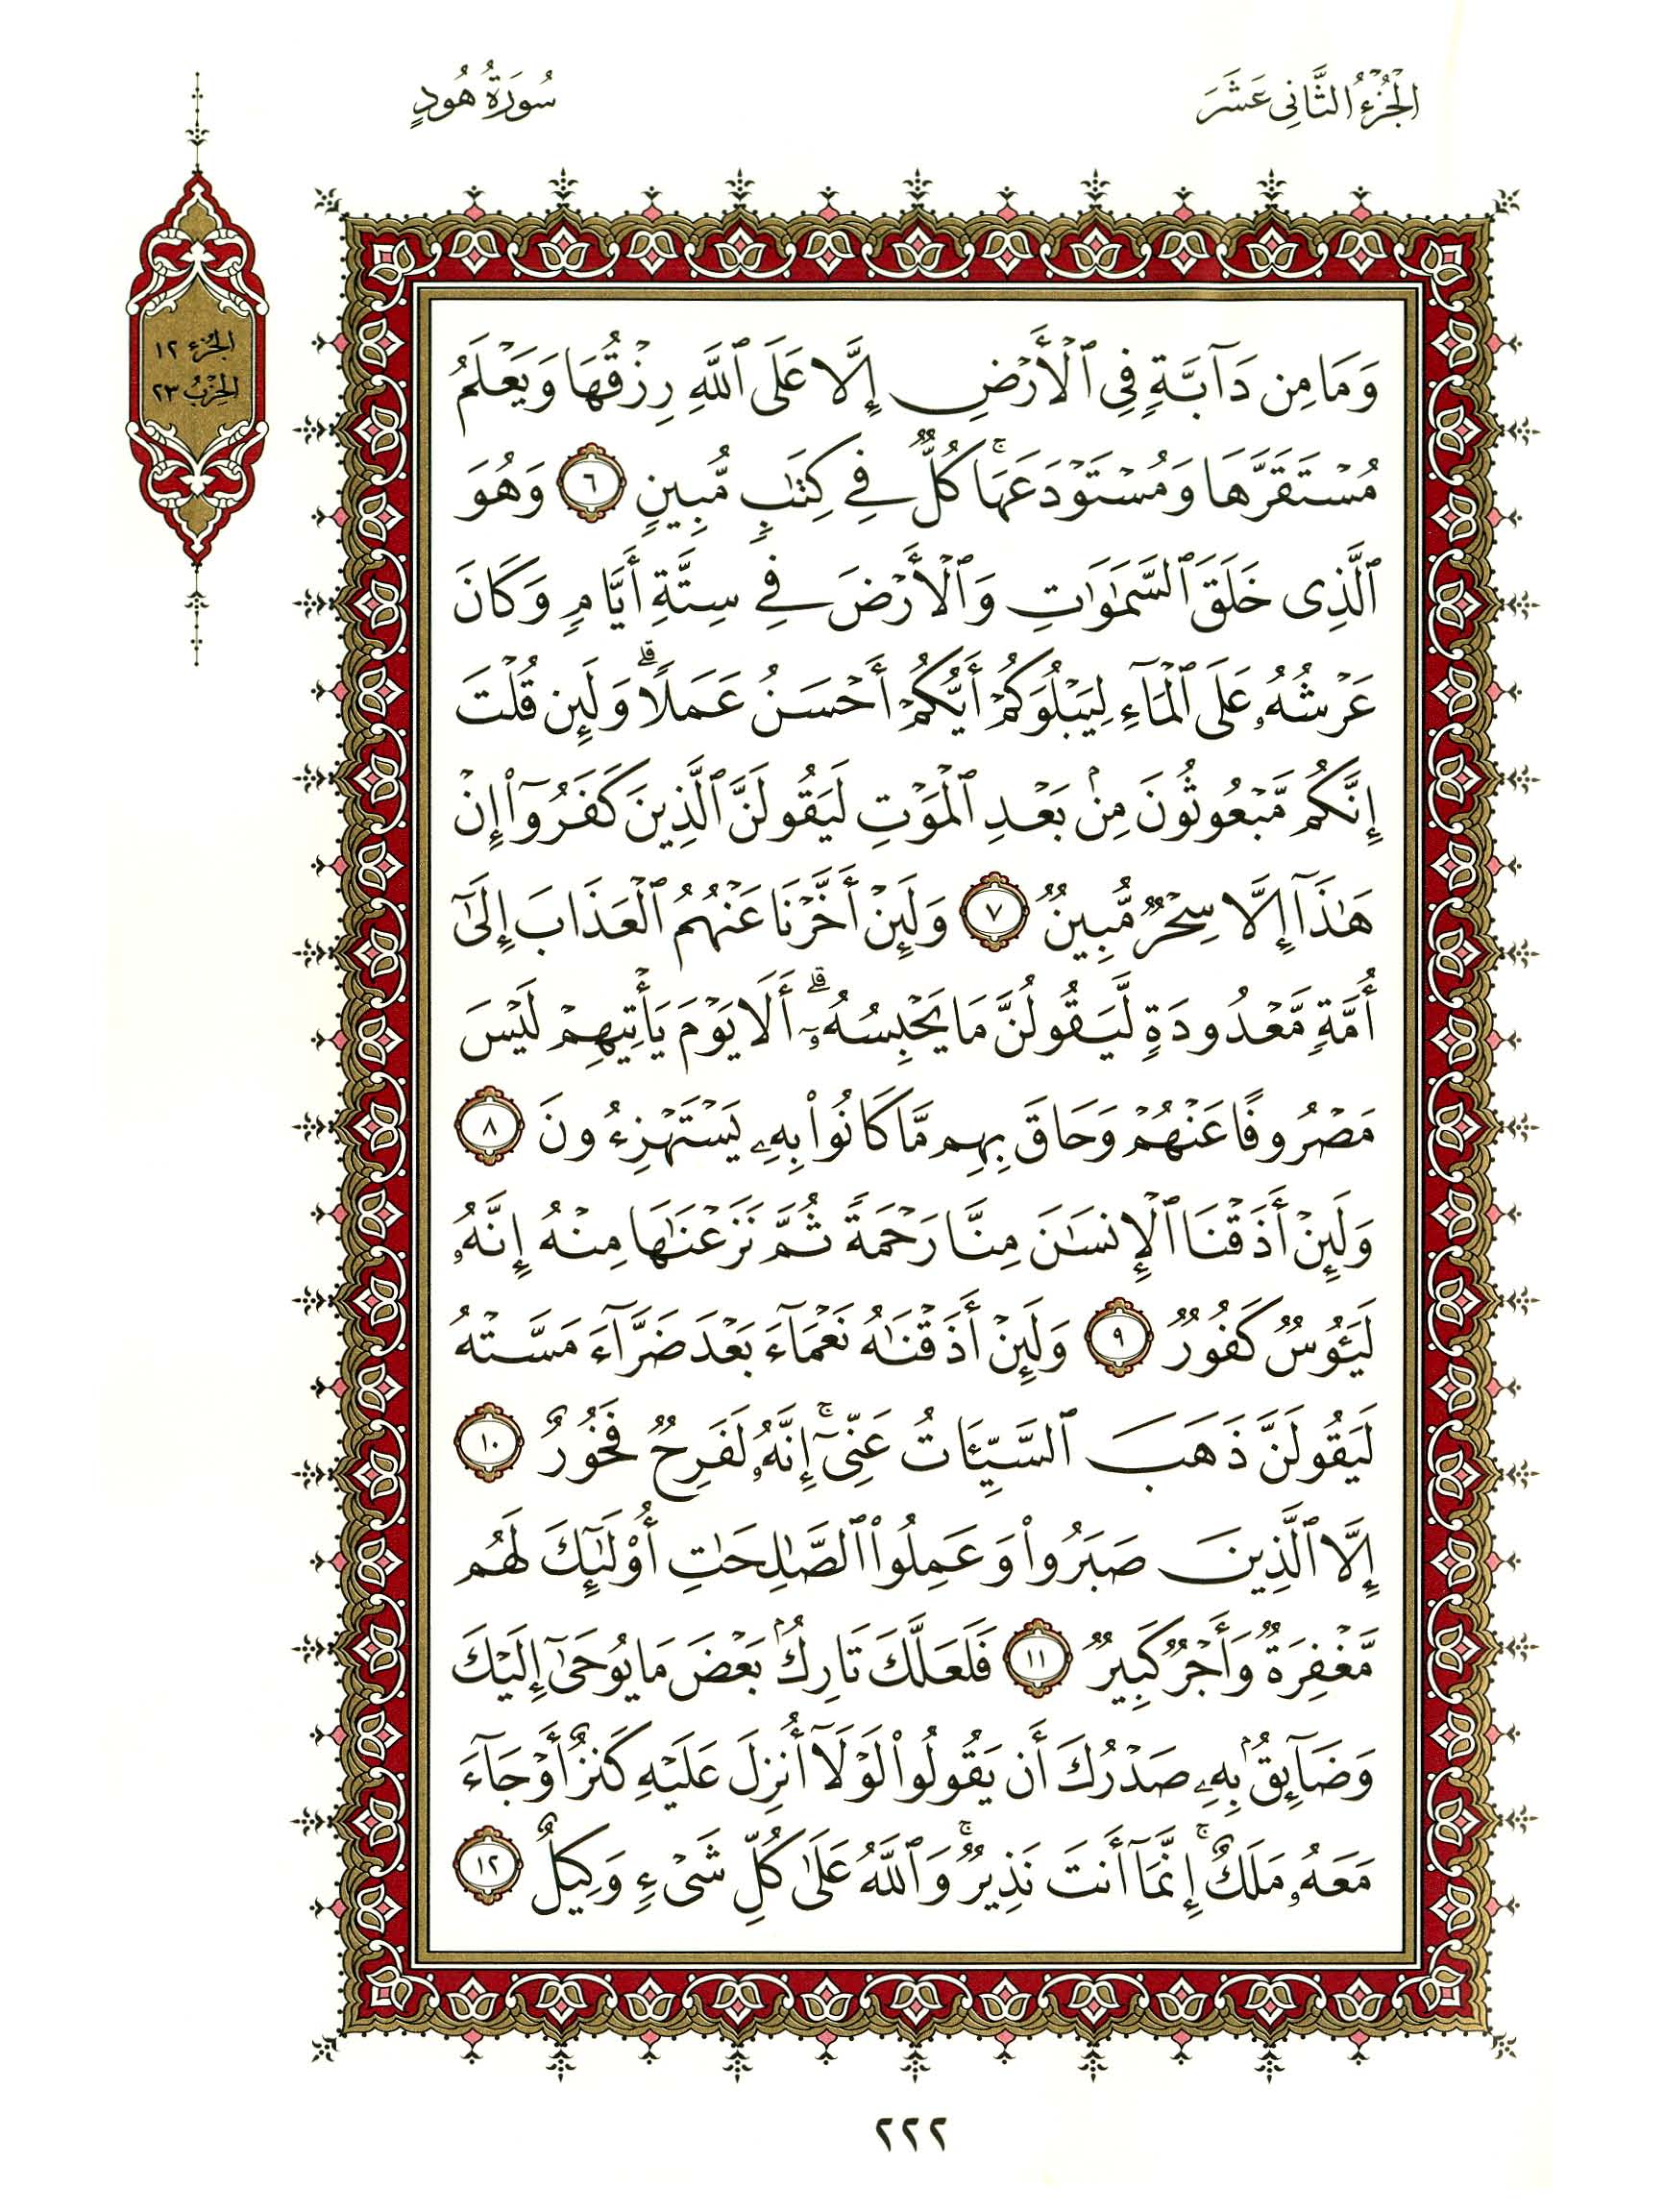 الجُزْءُ الثَّانِي عَشَرَ
سُورَةُ هُودٍ
الجزء ١٢
الحزب ٢٣
وَمَا مِن دَآبَّةٍ فِى ٱلْأَرْضِ إِلَّا عَلَى ٱللَّهِ رِزْقُهَا وَيَعْلَمُ
مُسْتَقَرَّهَا وَمُسْتَوْدَعَهَا ۚ كُلٌّ فِى كِتَٰبٍ مُّبِينٍ ٦ وَهُوَ
ٱلَّذِى خَلَقَ ٱلسَّمَٰوَٰتِ وَٱلْأَرْضَ فِى سِتَّةِ أَيَّامٍ وَكَانَ
عَرْشُهُۥ عَلَى ٱلْمَآءِ لِيَبْلُوَكُمْ أَيُّكُمْ أَحْسَنُ عَمَلًا ۗ وَلَئِن قُلْتَ
إِنَّكُم مَّبْعُوثُونَ مِنۢ بَعْدِ ٱلْمَوْتِ لَيَقُولَنَّ ٱلَّذِينَ كَفَرُوٓا۟ إِنْ
هَٰذَآ إِلَّا سِحْرٌ مُّبِينٌ ٧ وَلَئِنْ أَخَّرْنَا عَنْهُمُ ٱلْعَذَابَ إِلَىٰٓ
أُمَّةٍ مَّعْدُودَةٍ لَّيَقُولُنَّ مَا يَحْبِسُهُۥٓ ۗ أَلَا يَوْمَ يَأْتِيهِمْ لَيْسَ
مَصْرُوفًا عَنْهُمْ وَحَاقَ بِهِم مَّا كَانُوا۟ بِهِۦ يَسْتَهْزِءُونَ ٨
وَلَئِنْ أَذَقْنَا ٱلْإِنسَٰنَ مِنَّا رَحْمَةً ثُمَّ نَزَعْنَٰهَا مِنْهُ إِنَّهُۥ
لَيَـُٔوسٌ كَفُورٌ ٩ وَلَئِنْ أَذَقْنَٰهُ نَعْمَآءَ بَعْدَ ضَرَّآءَ مَسَّتْهُ
لَيَقُولَنَّ ذَهَبَ ٱلسَّيِّـَٔاتُ عَنِّىٓ ۚ إِنَّهُۥ لَفَرِحٌ فَخُورٌ ١٠
إِلَّا ٱلَّذِينَ صَبَرُوا۟ وَعَمِلُوا۟ ٱلصَّٰلِحَٰتِ أُو۟لَٰٓئِكَ لَهُم
مَّغْفِرَةٌ وَأَجْرٌ كَبِيرٌ ١١ فَلَعَلَّكَ تَارِكٌۢ بَعْضَ مَا يُوحَىٰٓ إِلَيْكَ
وَضَآئِقٌۢ بِهِۦ صَدْرُكَ أَن يَقُولُوا۟ لَوْلَآ أُنزِلَ عَلَيْهِ كَنزٌ أَوْ جَآءَ
مَعَهُۥ مَلَكٌ ۚ إِنَّمَآ أَنتَ نَذِيرٌ ۚ وَٱللَّهُ عَلَىٰ كُلِّ شَىْءٍ وَكِيلٌ ١٢
٢٢٢